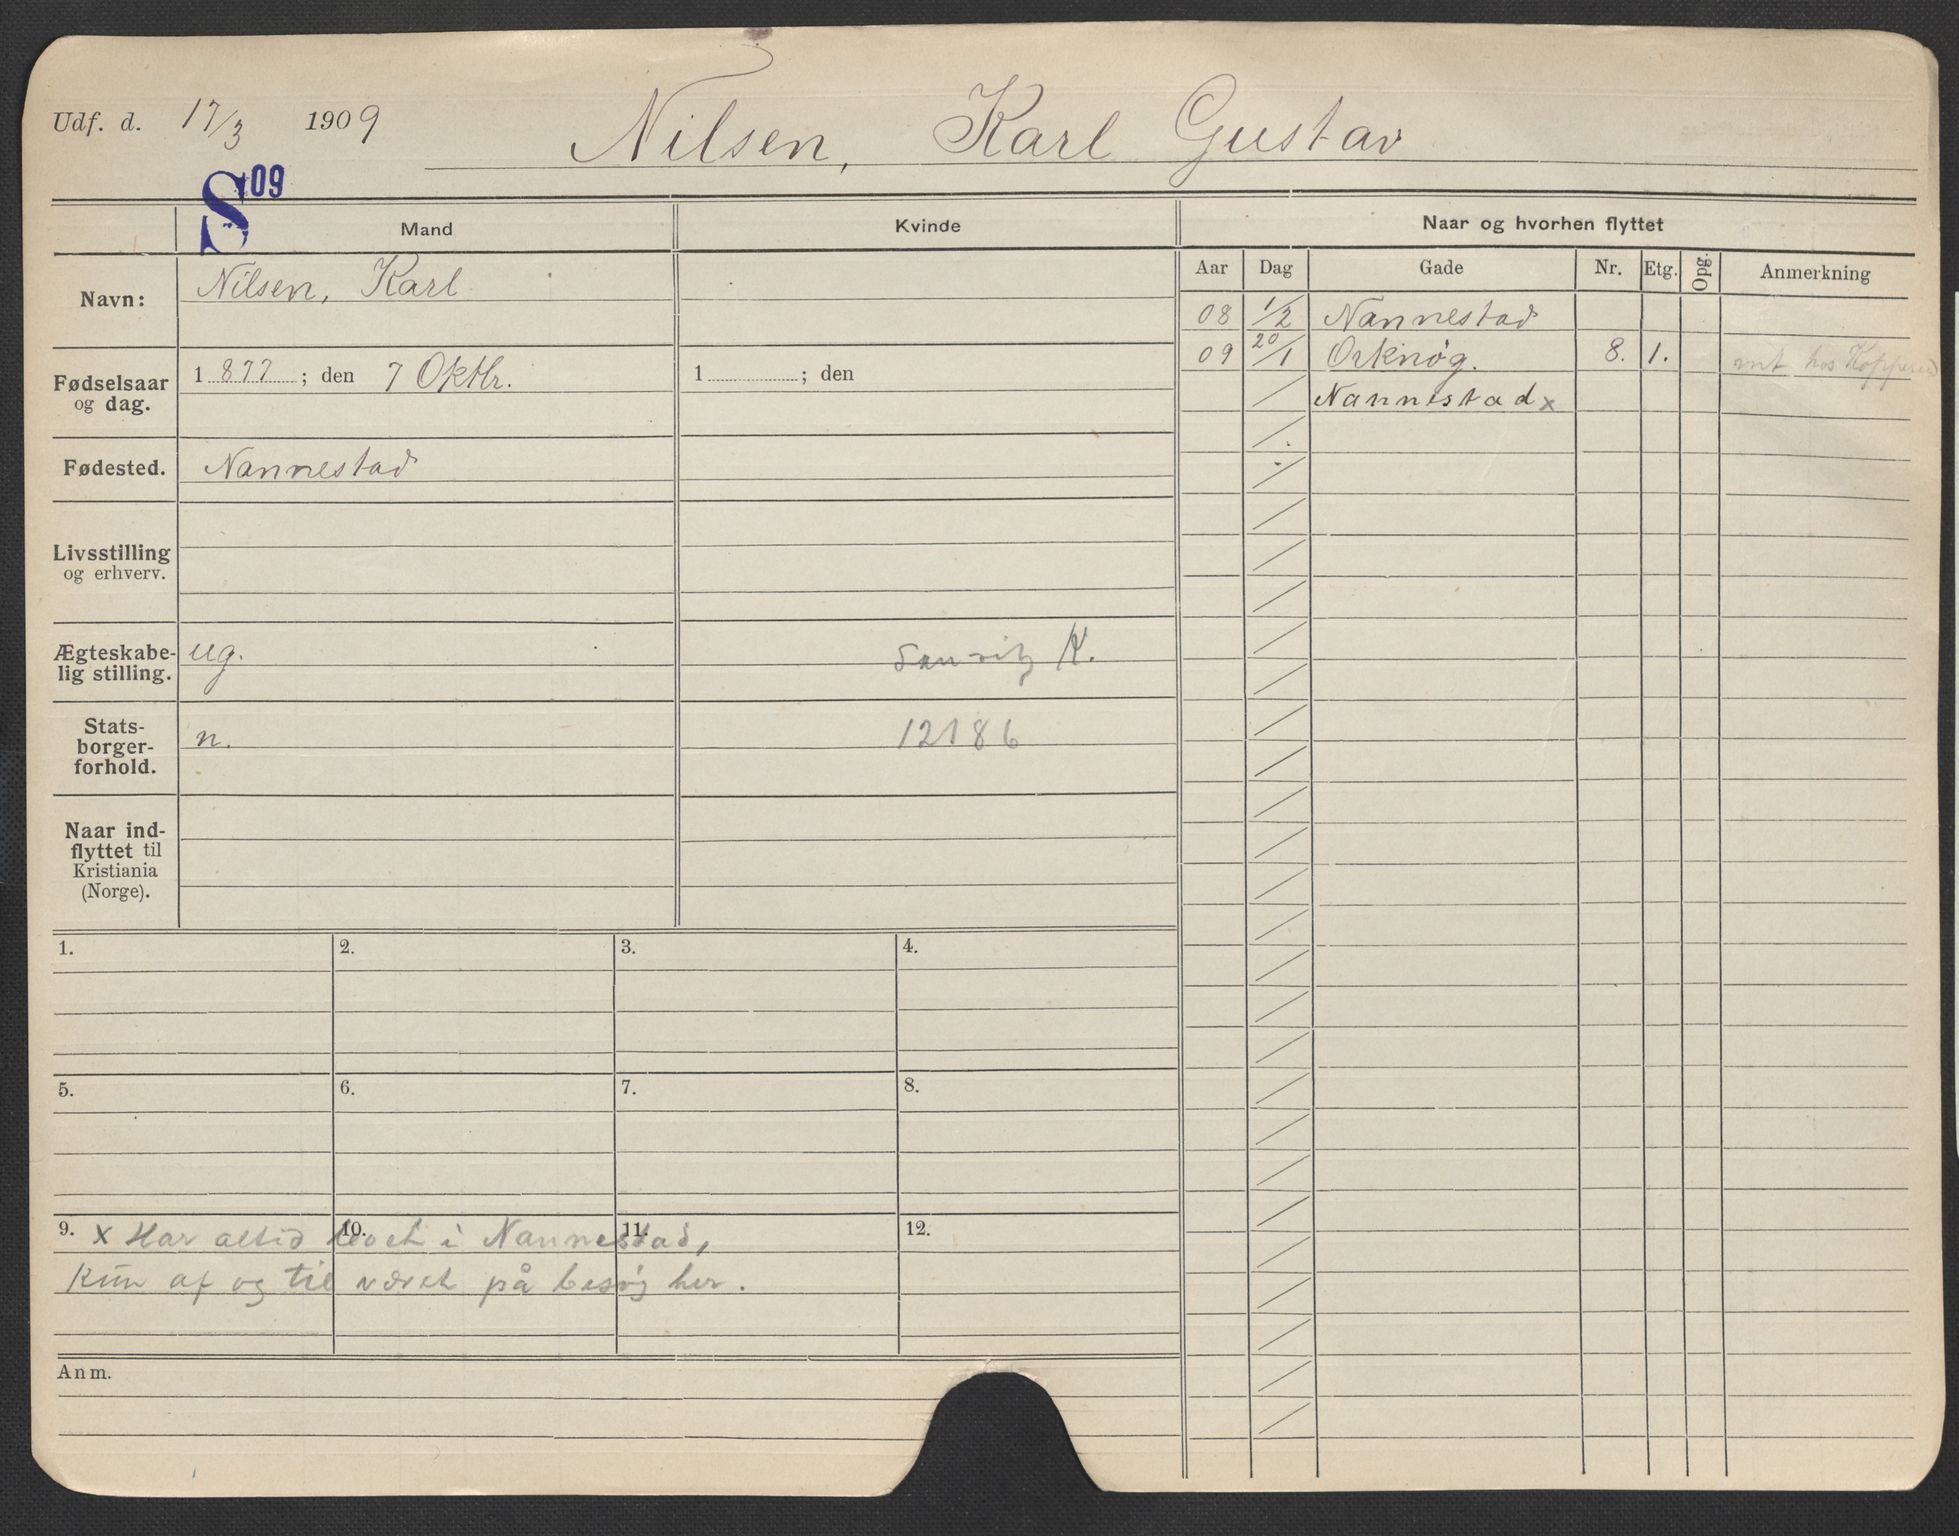 Udf. d. 17/3 1909 Nilsen, Karl Gustav
S 09
Mand Kvinde Naar og hvorhen flyttet
Aar Dag Gade Nr. Etg. Opg. Anmerkning
Navn: Nilsen, Karl
08 1/2 Nannestad
09 20/1 Orknøg. 8. 1. hos
Nannestad x
Fødselsaar
og dag.
1877; den 7 Oktbr. 1 ; den
Fødested. Nannestad
Livsstilling
og erhverv.
Ægteskabe-
lig stilling.
ug. K.
Stats-
borger-
forhold.
n. 12186
Naar ind-
flyttet til
Kristiania
(Norge).
1. 2. 3. 4.
5. 6. 7. 8.
9. 10. 11. 12.
x Har altid boet i Nannestad,
Kun af og til været på besøg her.
Anm.